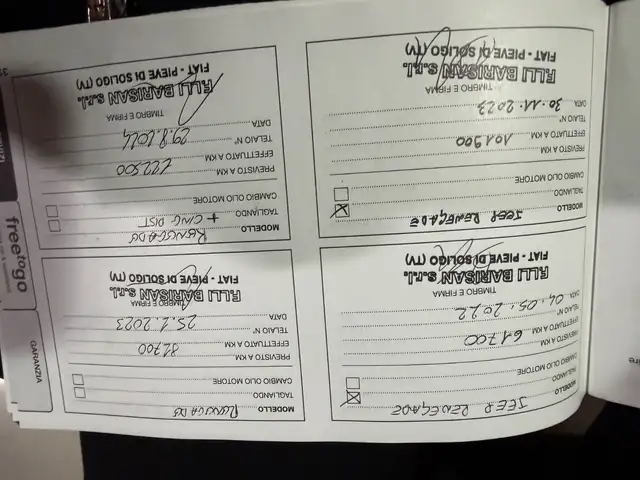 MODELLO JEEP RENEGADE
TAGLIANDO
CAMBIO OLIO MOTORE
PREVISTO A KM
EFFETTUATO A KM 61700
TELAIO N°
DATA 04.05.2022
TIMBRO E FIRMA
F.LLI BARISAN s.r.l.
FIAT - PIEVE DI SOLIGO (TV)
MODELLO RENEGADE
TAGLIANDO
CAMBIO OLIO MOTORE
PREVISTO A KM
EFFETTUATO A KM 82700
TELAIO N°
DATA 25.1.2023
TIMBRO E FIRMA
F.LLI BARISAN s.r.l.
FIAT - PIEVE DI SOLIGO (TV)
MODELLO JEEP RENEGADE
TAGLIANDO
CAMBIO OLIO MOTORE
PREVISTO A KM
EFFETTUATO A KM 101900
TELAIO N°
DATA 30.11.2023
TIMBRO E FIRMA
F.LLI BARISAN s.r.l.
FIAT - PIEVE DI SOLIGO (TV)
MODELLO RENEGADE
TAGLIANDO + CING DIST
CAMBIO OLIO MOTORE
PREVISTO A KM
EFFETTUATO A KM 122500
TELAIO N°
DATA 29.8.2024
TIMBRO E FIRMA
F.LLI BARISAN s.r.l.
FIAT - PIEVE DI SOLIGO (TV)
GARANZIA
freetogo